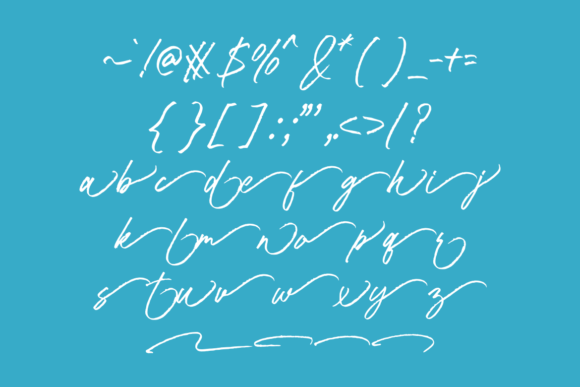 ~`!@#$%^&*()_-+=
{}[]:;"',.<>/?
abcdefghij
klmnopqr
stuvwxyz